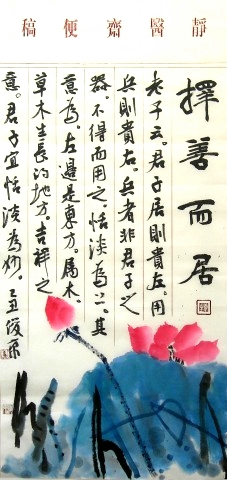 靜醫齋便稿
擇善而居
老子云。君子居則貴左。用
兵則貴右。兵者非君子之
器。不得而用之。恬淡為上。其
意為。左邊是東方。屬木。
草木生長的地方。吉祥之
意。君子宜恬淡為妙。